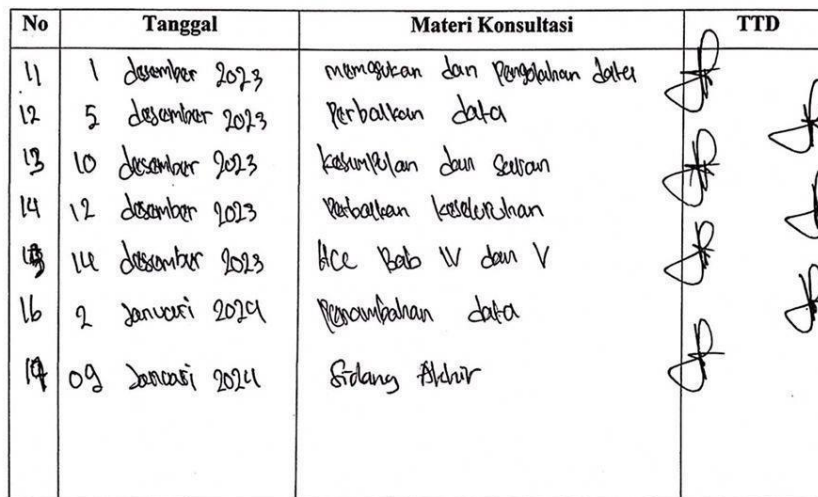 No Tanggal Materi Konsultasi TTD
11 1 desember 2023 memasukan dan Pengolahan data
12 5 desember 2023 Perbaikan data
13 10 desember 2023 kesumpulan dan Saran
14 12 desember 2023 Perbaikan keseluruhan
15 14 desember 2023 Acc Bab IV dan V
16 2 Januari 2024 Penambahan data
17 09 Januari 2024 Sidang Akhir